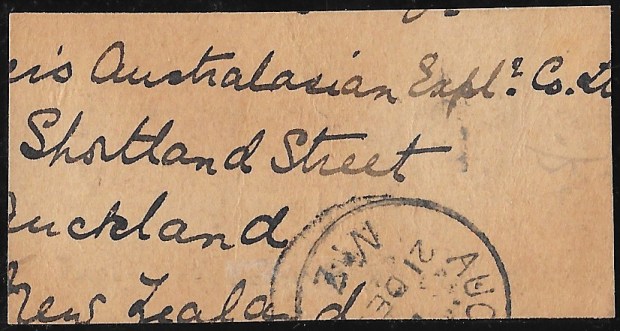 is Australasian Expl. Co. Lt
Shortland Street
Auckland
New Zealand
N.Z
AUC
21 DE